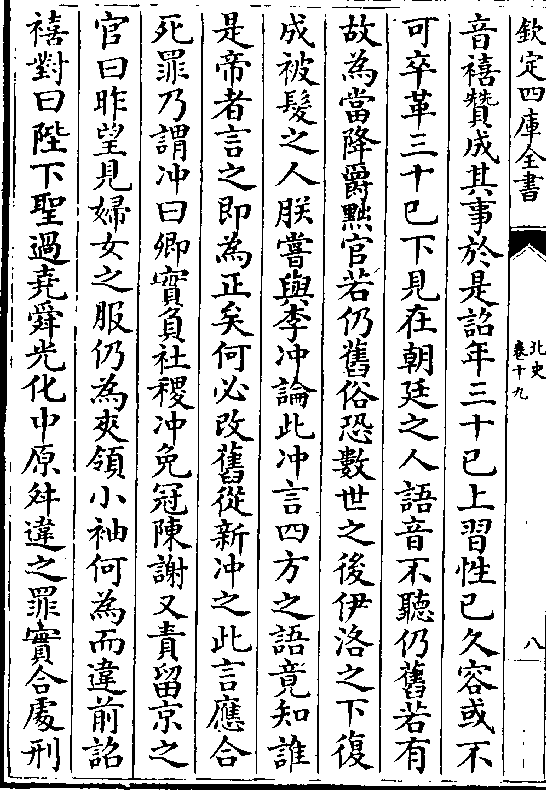 欽定四庫全書
北史
卷十九
八
音禧贊成其事於是詔年三十已上習性已久容或不
可卒革三十已下見在朝廷之人語音不聽仍舊若有
故為當降爵黜官若仍舊俗恐數世之後伊洛之下復
成被髮之人朕嘗與李冲論此冲言四方之語竟知誰
是帝者言之即為正矣何必改舊從新冲之此言應合
死罪乃謂冲曰卿實負社稷冲免冠陳謝又責留京之
官曰昨望見婦女之服仍為夾領小袖何為而違前詔
禧對曰陛下聖過堯舜光化中原舛違之罪實合處刑